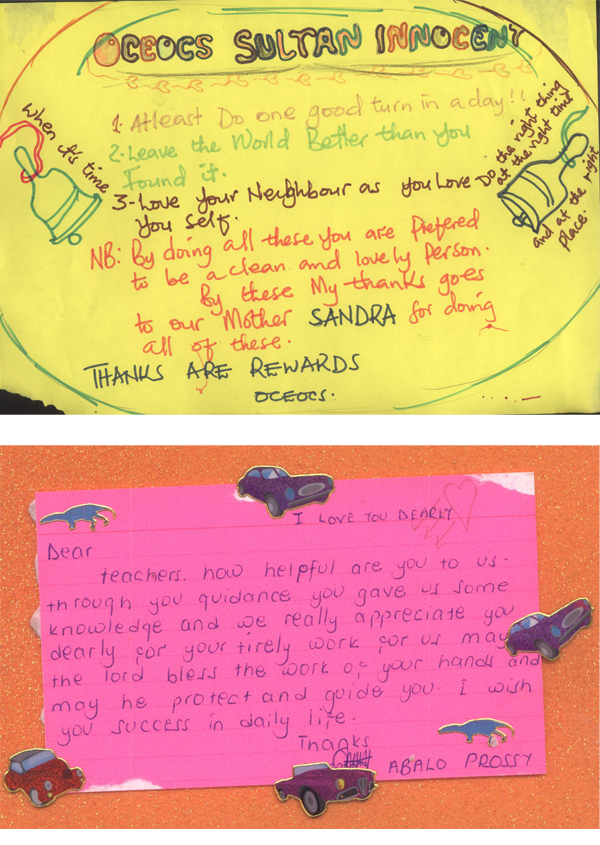 OCEOCS SULTAN INNOCENT
1. Atleast Do one good turn in a day!!
2. Leave the World Better than you
Found it.
3- Love your Neighbour as you Love
you self.
NB: By doing all these you are Prefered
to be a clean and lovely Person.
By these My thanks goes
to our Mother SANDRA for doing
all of these.
THANKS ARE REWARDS
OCEOCS.
When it's time
Do the right thing
at the right time
and at the right
place.
I LOVE YOU DEARLY
Dear
teachers. how helpful are you to us.
through you guidance you gave us some
knowledge and we really appreciate you
dearly for your tirely work for us may
the lord bless the work of your hands and
may he protect and guide you. i wish
you success in daily life.
Thanks
ABALO PROSSY